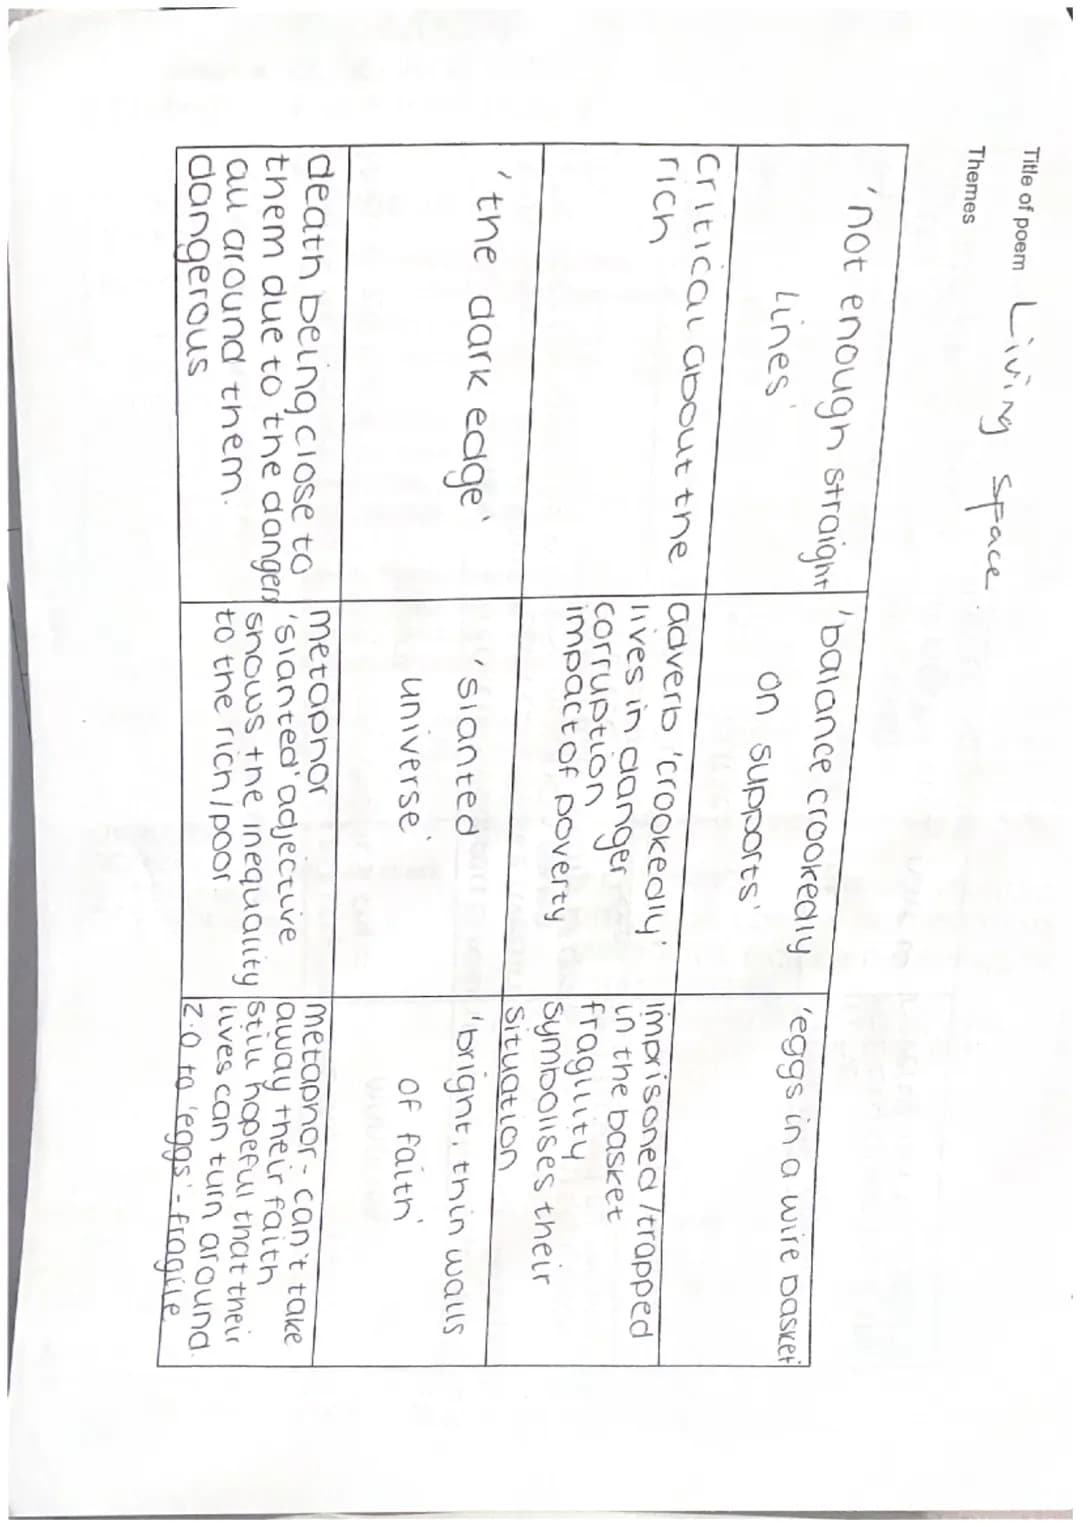 Title of poem Living Space.
Themes
'not enough straight
Lines'
'balance crookedly
on supports'
'eggs in a wire basket
Critical about the
rich
adverb 'crookedly'
lives in danger
corruption
impact of poverty
imprisoned / trapped
in the basket
fragility
symbolises their
situation
'the dark edge'
'slanted
universe'
'bright, thin walls
of faith'
death being close to
them due to the dangers
all around them.
dangerous
metaphor
'slanted' adjective
shows the inequality
to the rich/poor
metaphor - can't take
away their faith
still hopeful that their
lives can turn around.
z.o to 'eggs' - fragile